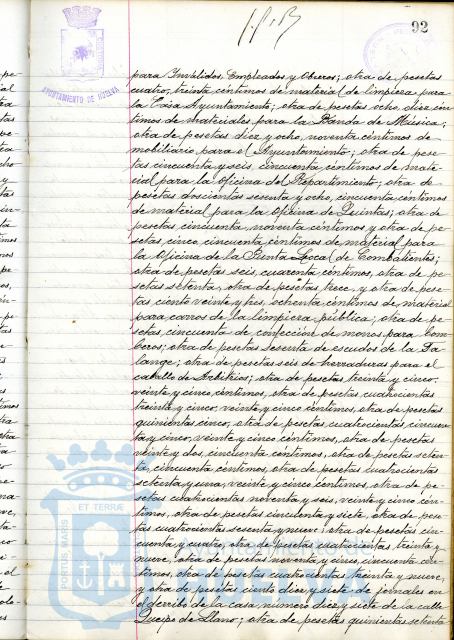 92
AYUNTAMIENTO DE HUELVA
para Inválidos, Empleados y Obreros; otra de pesetas
cuatro, treinta céntimos de material de limpieza para
la Casa Ayuntamiento; otra de pesetas ocho, diez cén-
timos de materiales para la Banda de Música;
otra de pesetas diez y ocho, noventa céntimos de
mobiliario para el Ayuntamiento; otra de pese-
tas cincuenta y seis, cincuenta céntimos de mate-
rial para la Oficina del Repartimiento; otra de
pesetas doscientas sesenta y ocho, cincuenta céntimos
de material para la Oficina de Quintas; otra de
pesetas, cincuenta, noventa céntimos y otra de pe-
setas, cinco, cincuenta céntimos de material para
la Oficina de la Junta Local de Combatientes;
otra de pesetas seis, cuarenta céntimos, otra de pe-
setas setenta, otra de pesetas trece, y otra de pese-
tas ciento veinte y tres, ochenta céntimos de material
para carros de la limpieza pública; otra de pe-
setas, cincuenta de confección de monos para Bom-
beros; otra de pesetas sesenta de escudos de la Fa-
lange; otra de pesetas seis de herraduras para el
caballo de Arbitrios; otra de pesetas treinta y cinco,
veinte y cinco céntimos, otra de pesetas, cuatrocientas
treinta y cinco, veinte y cinco céntimos, otra de pesetas
quinientas cinco, otra de pesetas cuatrocientas, cincuen-
ta y cinco, veinte y cinco céntimos, otra de pesetas
veinte y dos, cincuenta céntimos, otra de pesetas seten-
ta, cincuenta céntimos, otra de pesetas cuatrocientas
setenta y una, veinte y cinco céntimos, otra de pe-
setas cuatrocientas noventa y seis, veinte y cinco cén-
timos, otra de pesetas cincuenta y siete, otra de pese-
tas cuatrocientas sesenta y nueve; otra de pesetas cin-
cuenta y cuatro, otra de pesetas cuatrocientas treinta y
nueve, otra de pesetas noventa y cinco, cincuenta cén-
timos, otra de pesetas cuatrocientas treinta y nueve,
y otra de pesetas ciento diez y siete de jornales en
el derribo de la casa número diez y siete de la calle
Queipo de Llano; otra de pesetas quinientas setenta
PORTUS MARIS ET TERRÆ